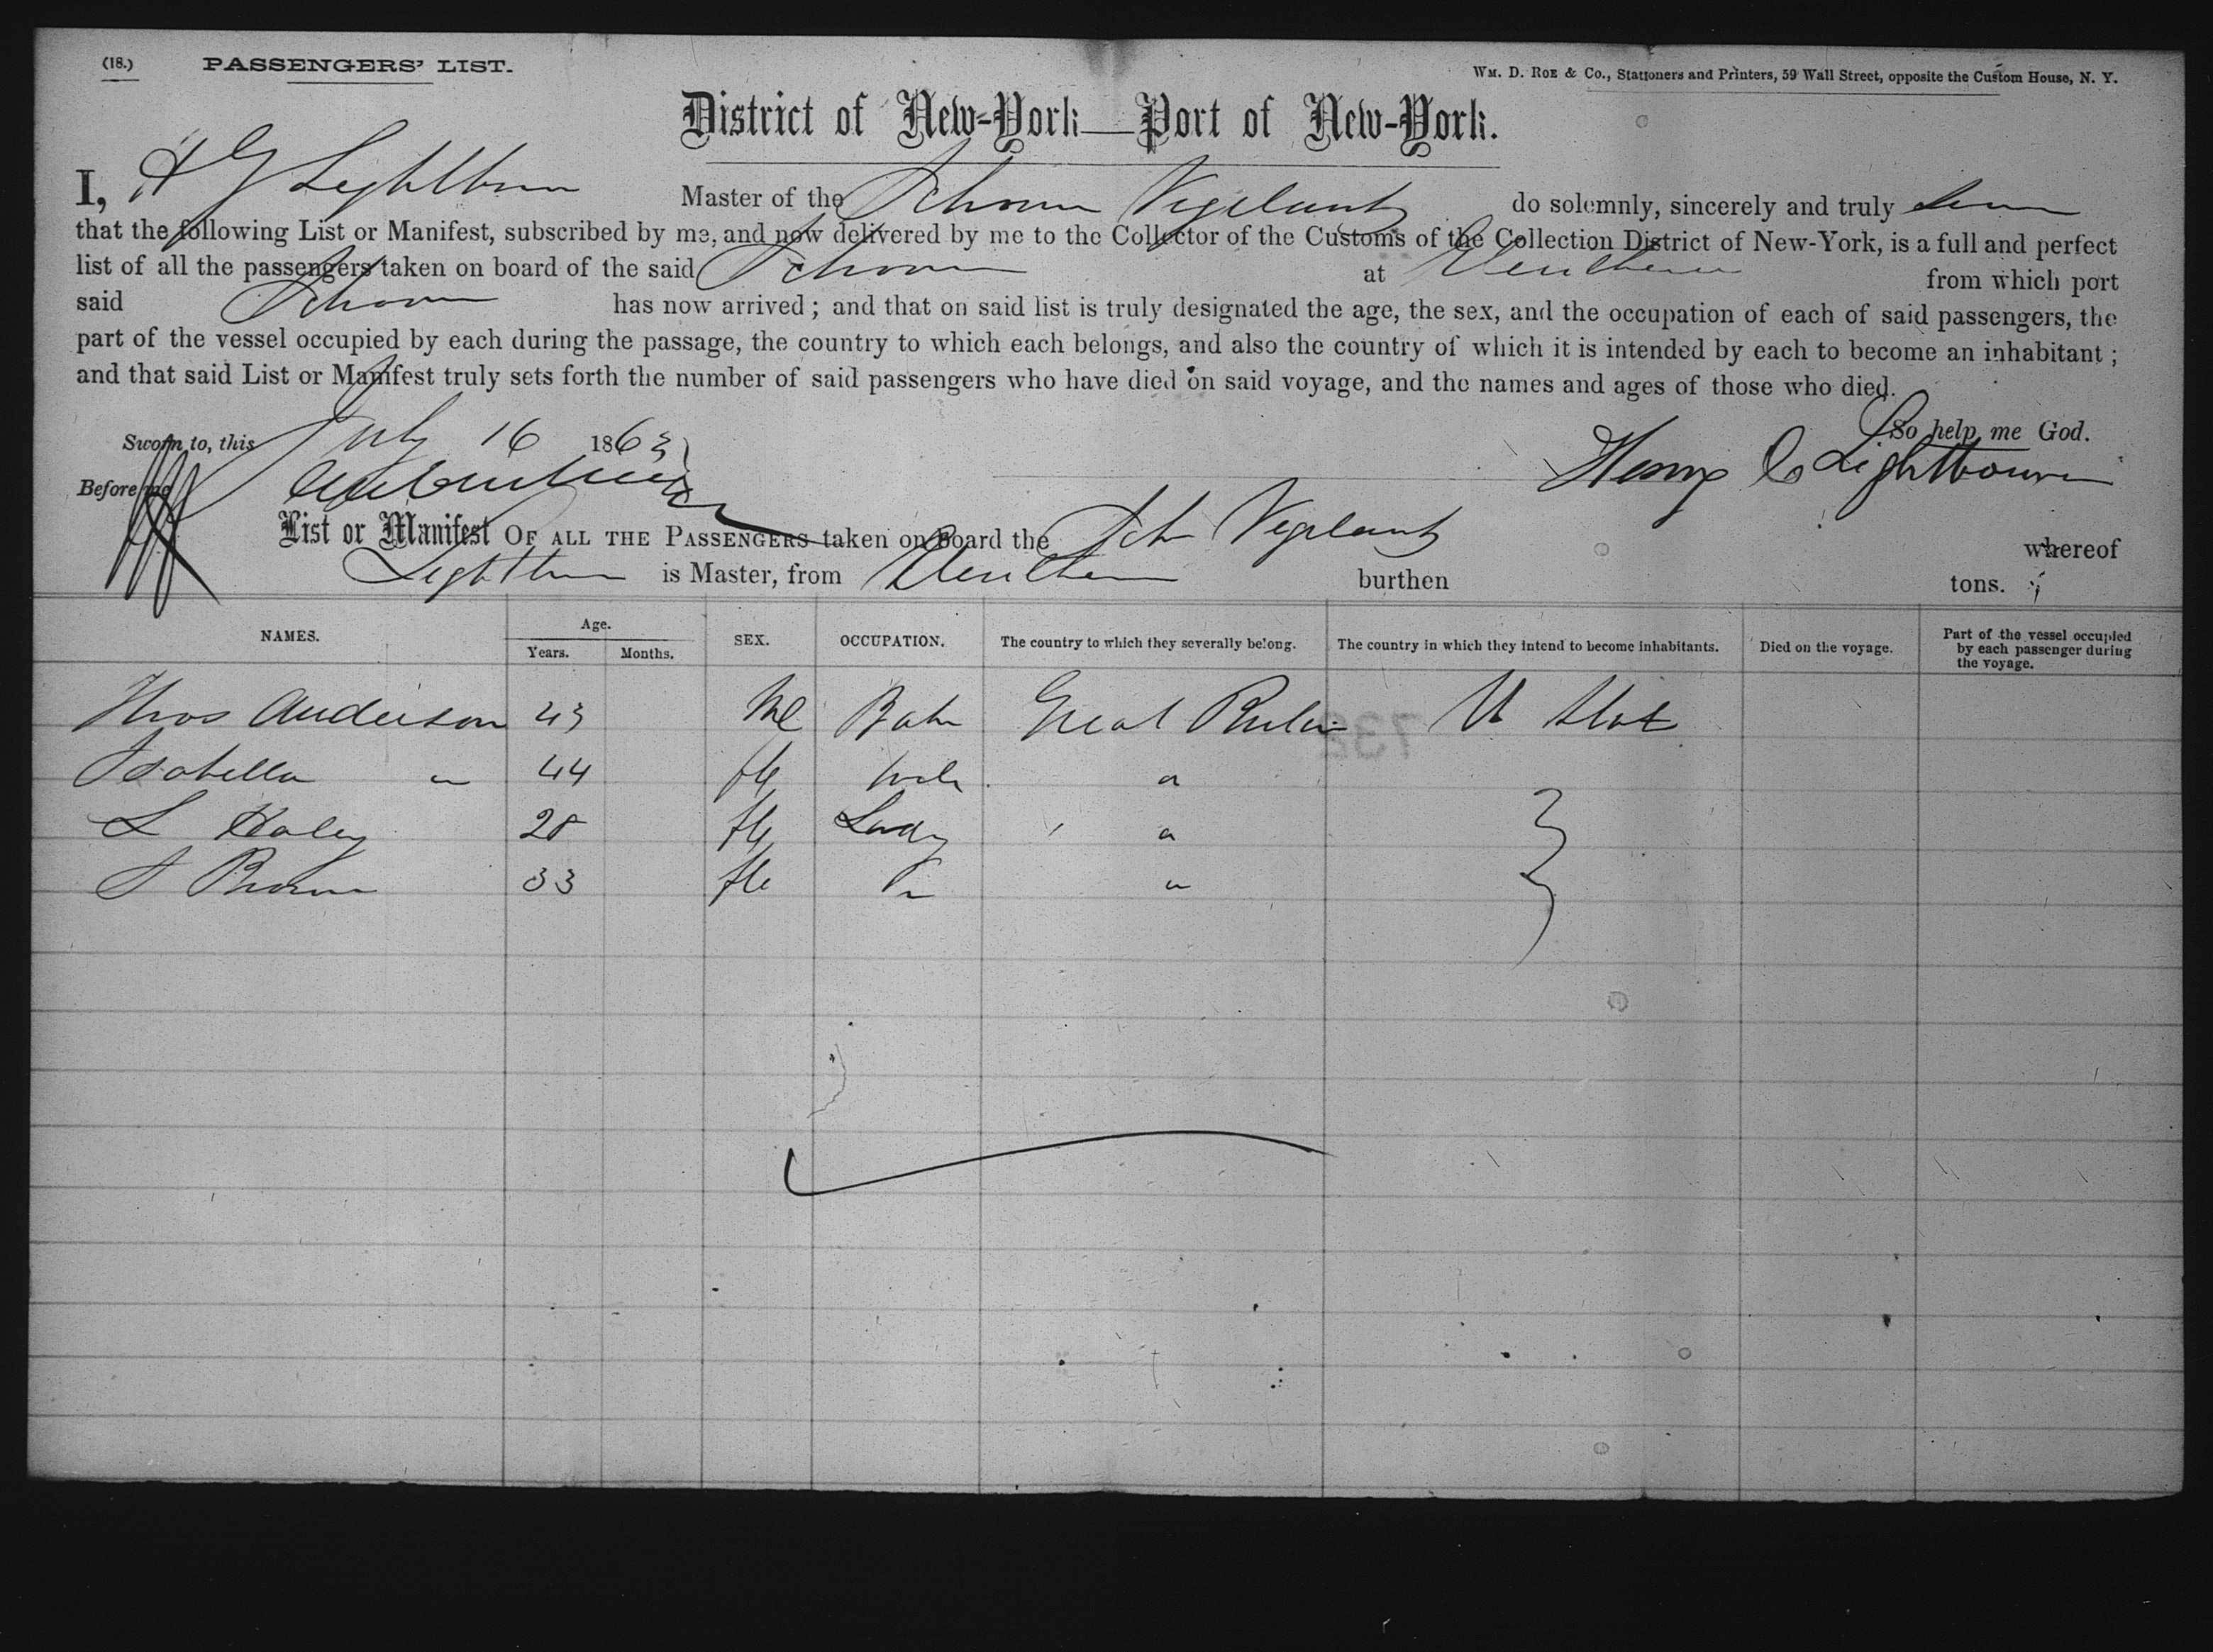 (18.) PASSENGERS' LIST.
WM. D. ROE & Co., Stationers and Printers, 59 Wall Street, opposite the Custom House, N. Y.
District of New-York—Port of New-York.
I, H G Lightbourn Master of the Schooner Vigilant do solemnly, sincerely and truly
that the following List or Manifest, subscribed by me, and now delivered by me to the Collector of the Customs of the Collection District of New-York, is a full and perfect
list of all the passengers taken on board of the said Schooner at Eleuthera from which port
said Schooner has now arrived; and that on said list is truly designated the age, the sex, and the occupation of each of said passengers, the
part of the vessel occupied by each during the passage, the country to which each belongs, and also the country of which it is intended by each to become an inhabitant;
and that said List or Manifest truly sets forth the number of said passengers who have died on said voyage, and the names and ages of those who died.
So help me God.
Sworn to, this July 16 1863
Before me
Henry C Lightbourn
List or Manifest OF ALL THE PASSENGERS taken on board the Schr Vigilant whereof
Lightbourn is Master, from Eleuthera burthen tons.
NAMES. Age. Years. Months. SEX. OCCUPATION. The country to which they severally belong. The country in which they intend to become inhabitants. Died on the voyage. Part of the vessel occupied by each passenger during the voyage.
Thos Anderson 43 Ml Great Britain U Stat
Isabella " 44 fle wife "
L Haley 28 fle Lady "
J Brown 33 fle " "